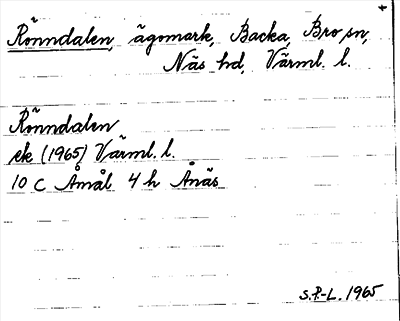 Rönndalen, ägomark, Backa, Bro sn,
Näs hd, Värml. l.
Rönndalen
ek (1965) Värml. l.
10 C Åmål 4 h Ånäs
S.P.-L. 1965